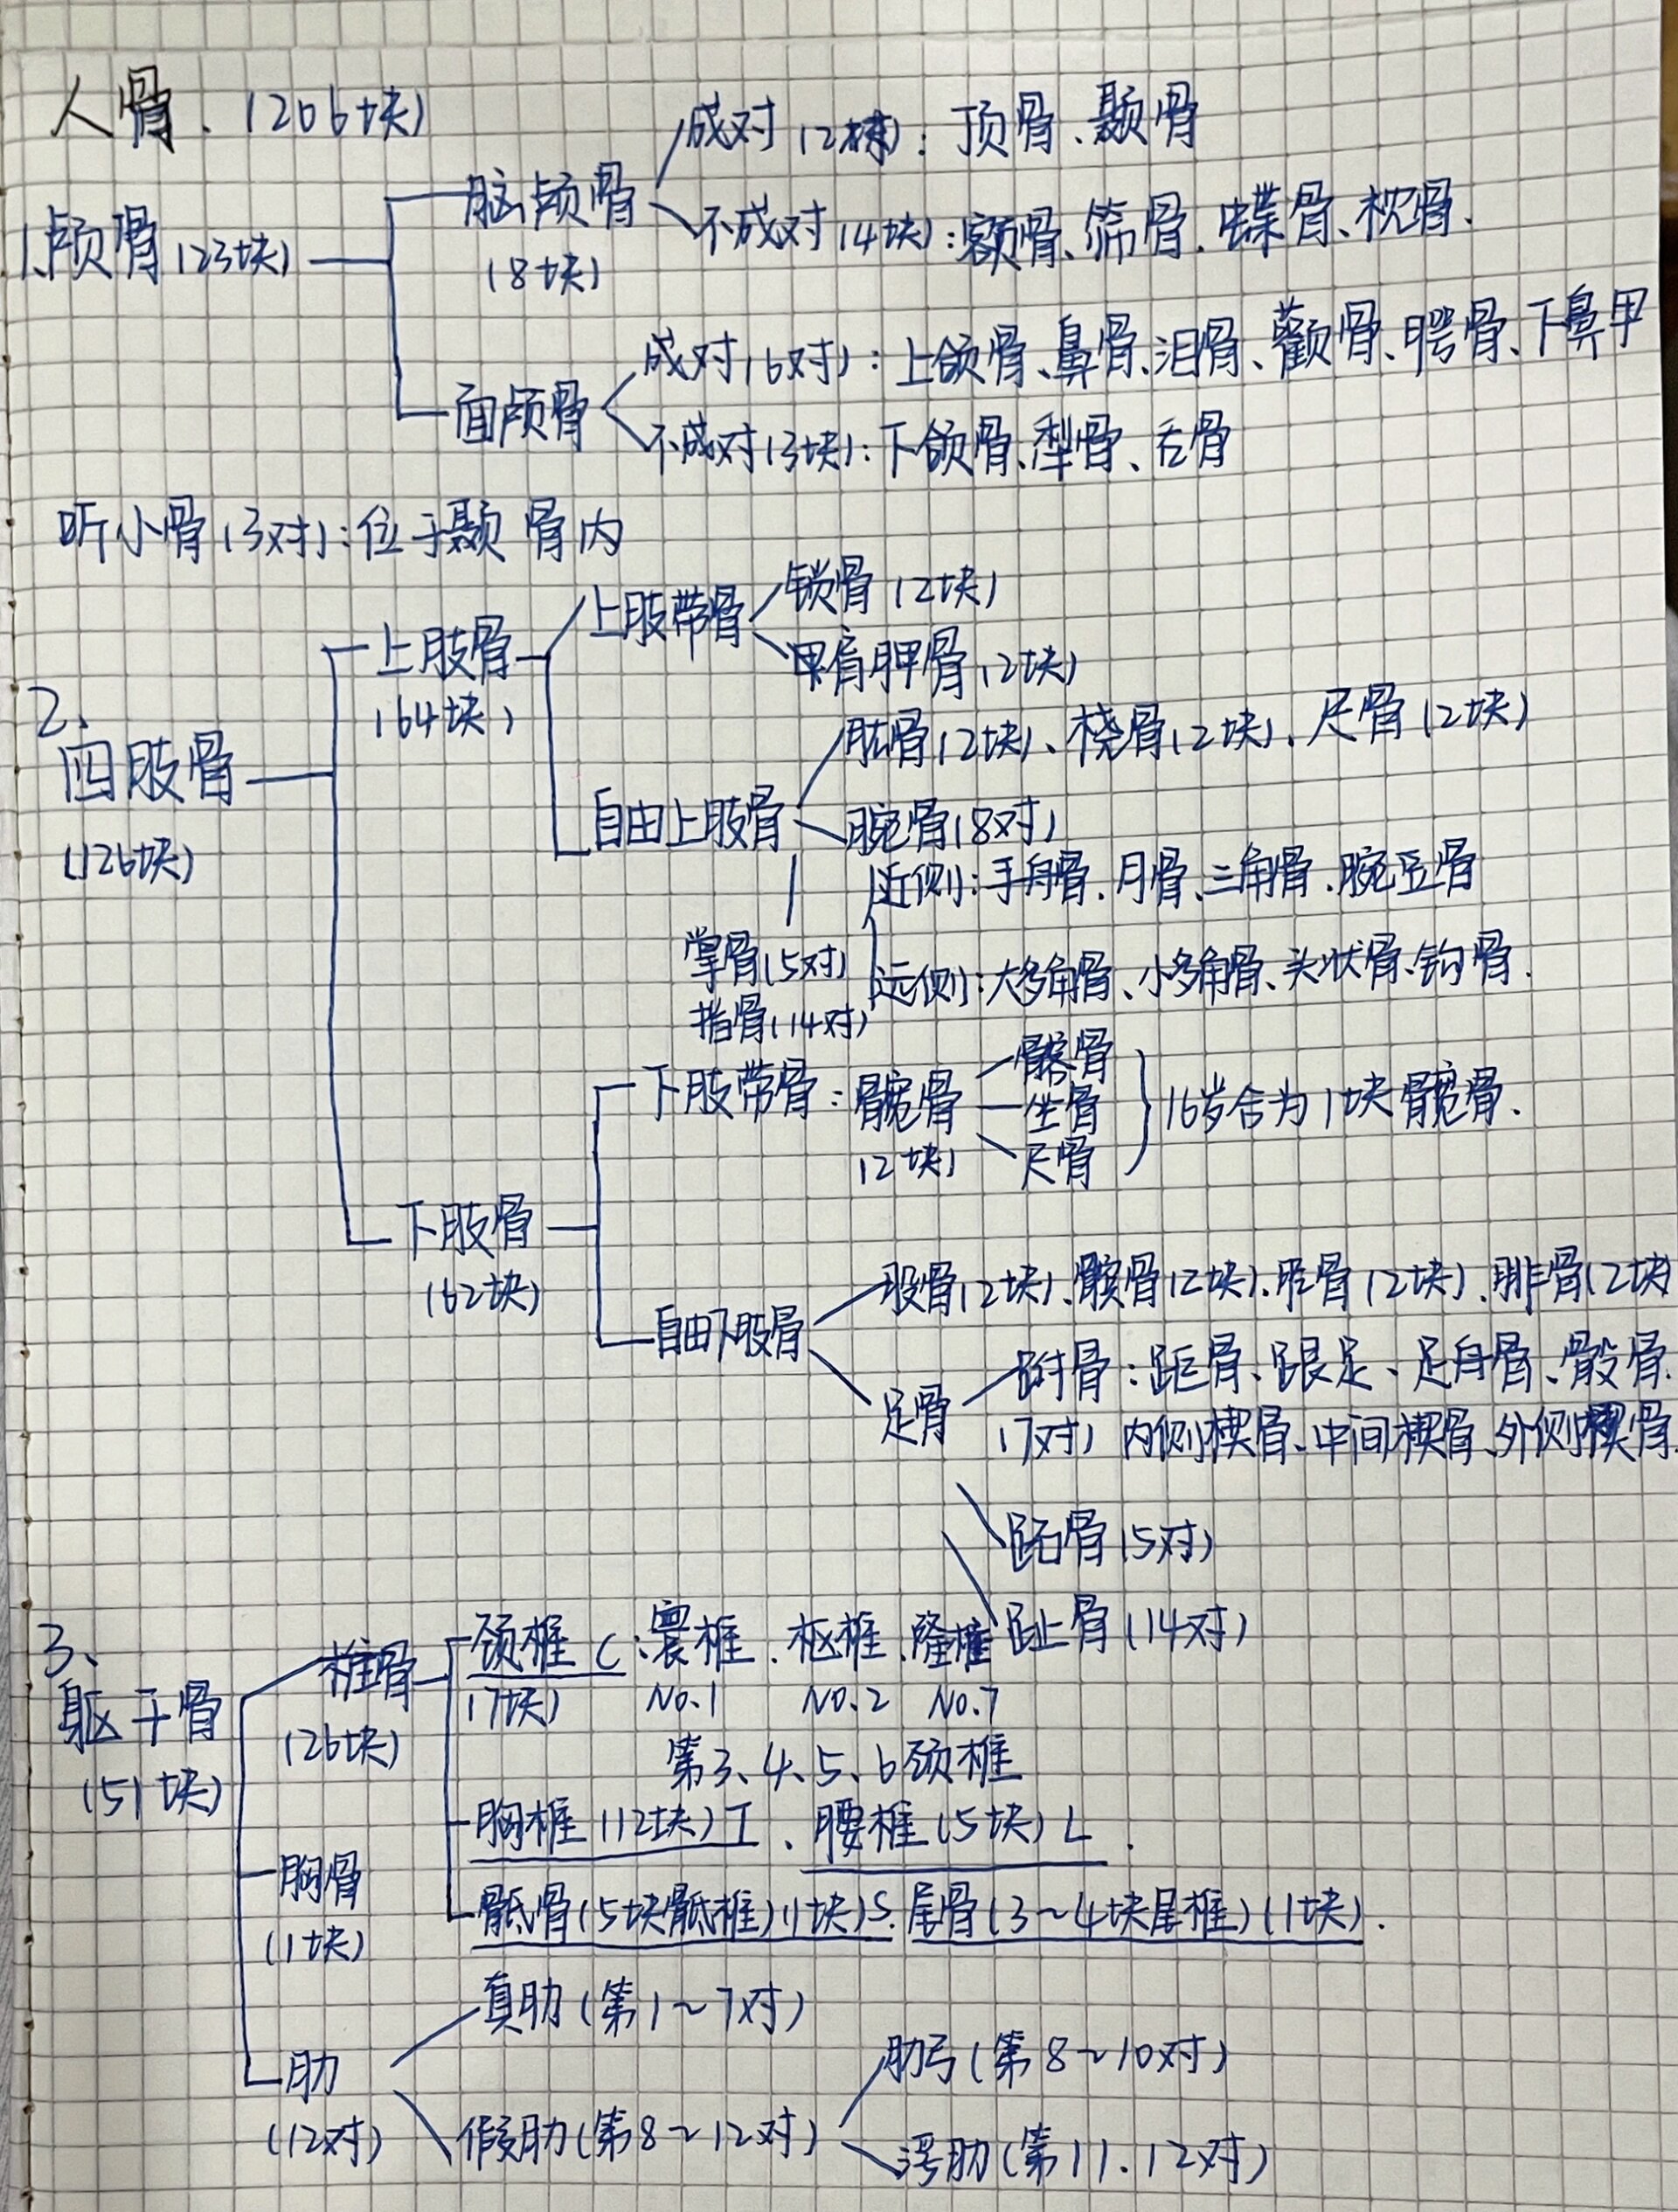 人骨.(206块)
成对(2对):顶骨、颞骨
1、颅骨(23块)
脑颅骨
(8块)
不成对(4块):额骨、筛骨、蝶骨、枕骨.
面颅骨
成对(6对):上颌骨、鼻骨、泪骨、颧骨、腭骨、下鼻甲
不成对(3块):下颌骨、犁骨、舌骨
听小骨(3对):位于颞骨内
2、
四肢骨
(126块)
上肢骨
(64块)
上肢带骨
锁骨(2块)
肩胛骨(2块)
自由上肢骨
肱骨(2块)、桡骨(2块)、尺骨(2块)
腕骨(8对)
近侧:手舟骨、月骨、三角骨、腕豆骨
远侧:大多角骨、小多角骨、头状骨、钩骨.
掌骨(5对)
指骨(14对)
下肢骨
(62块)
下肢带骨:髋骨
(2块)
髂骨
坐骨
尺骨
16岁合为1块髋骨.
自由下肢骨
股骨(2块)、髌骨(2块)、胫骨(2块)、腓骨(2块
足骨
跗骨:距骨、跟足、足舟骨、骰骨.
(7对) 内侧楔骨、中间楔骨、外侧楔骨.
跖骨(5对)
趾骨(14对)
3、
躯干骨
(51块)
椎骨
(26块)
颈椎C:寰椎、枢椎、隆椎
(7块) NO.1 NO.2 NO.7
第3、4、5、6颈椎
胸椎(12块)T、腰椎(5块)L.
骶骨(5块骶椎)(1块)S.尾骨(3~4块尾椎)(1块).
胸骨
(1块)
肋
(12对)
真肋(第1~7对)
假肋(第8~12对)
肋弓(第8~10对)
浮肋(第11、12对)